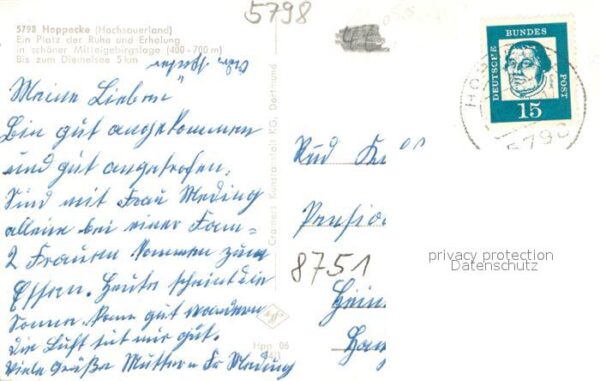 5798
5798 Hoppecke (Hochsauerland)
Ein Platz der Ruhe und Erholung
in schöner Mittelgebirgslage (400-700 m)
Bis zum Diemelsee 5 km
Meine Lieben
Bin gut angekommen
und gut angetrofen.
Sind mit Frau Meding
alleine bei einer Fam=
2 Frauen kommen zum
Essen. Heute scheint die
Sonne. Kann gut wandern
die Luft tut mir gut.
Viele Grüße Mutter u Fr Meding
Cramers Kunstanstalt KG, Dortmund
Hpp 06
DEUTSCHE BUNDES POST
15
HOPP
5790
Rud
Pension
8751
Hein
privacy protection
Datenschutz